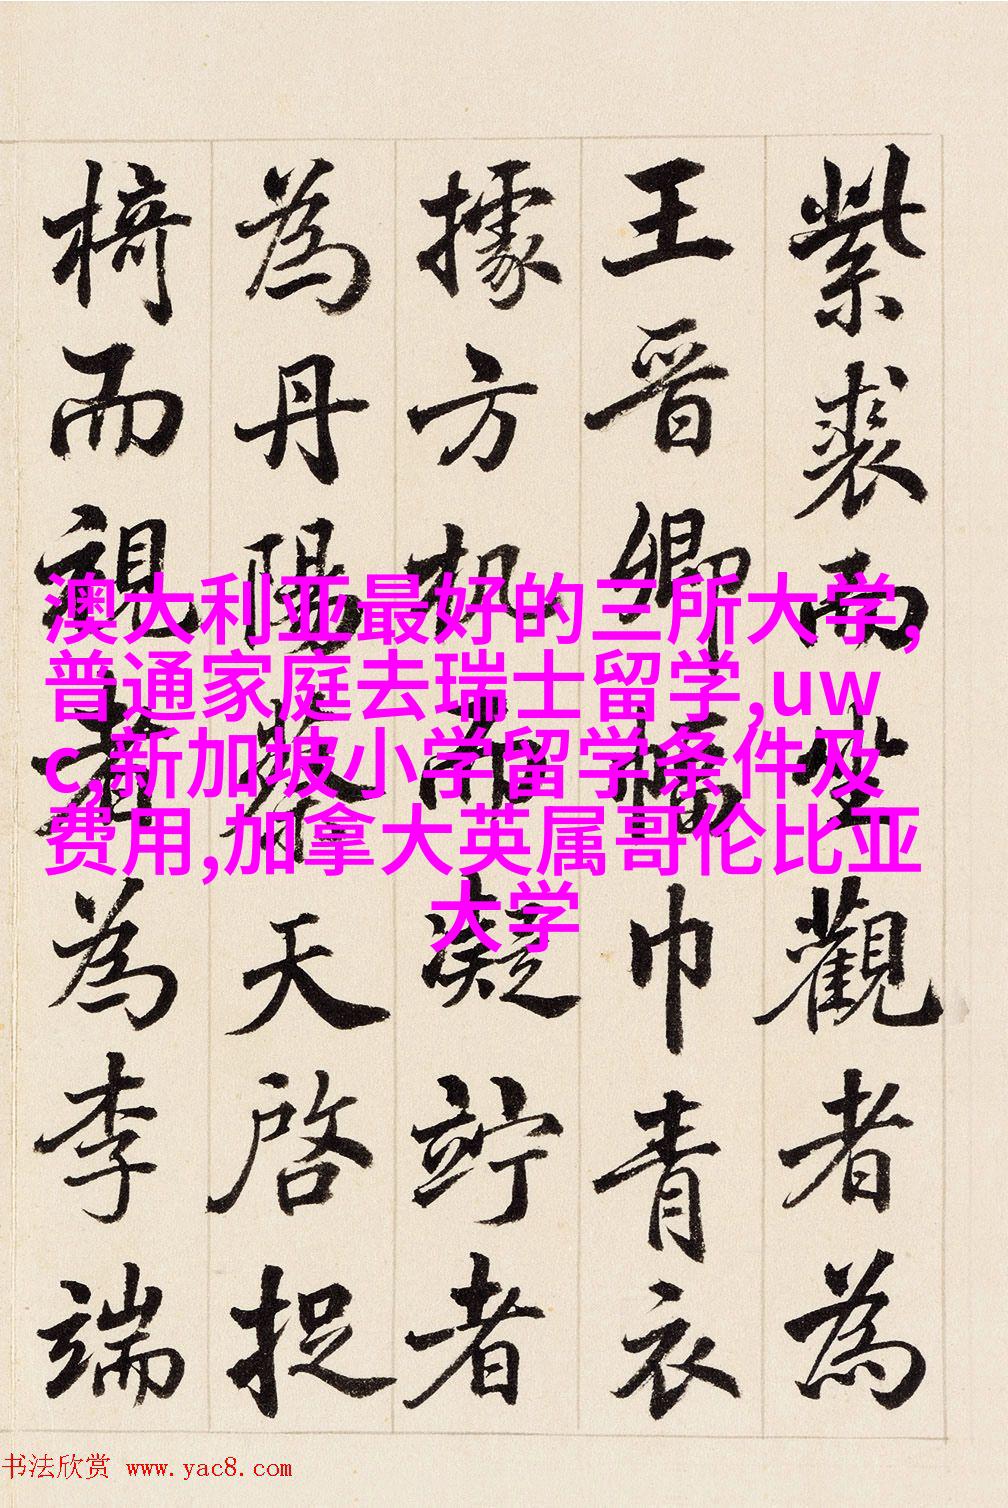 紫裘而坐觀者為
王晋卿幅巾青衣
據方机而凝竚者
為丹陽蔡天啓捉
椅而視者為李端
澳大利亚最好的三所大学,
普通家庭去瑞士留学,uw
c,新加坡小学留学条件及
费用,加拿大英属哥伦比亚
大学
书法欣赏 www.yac8.com